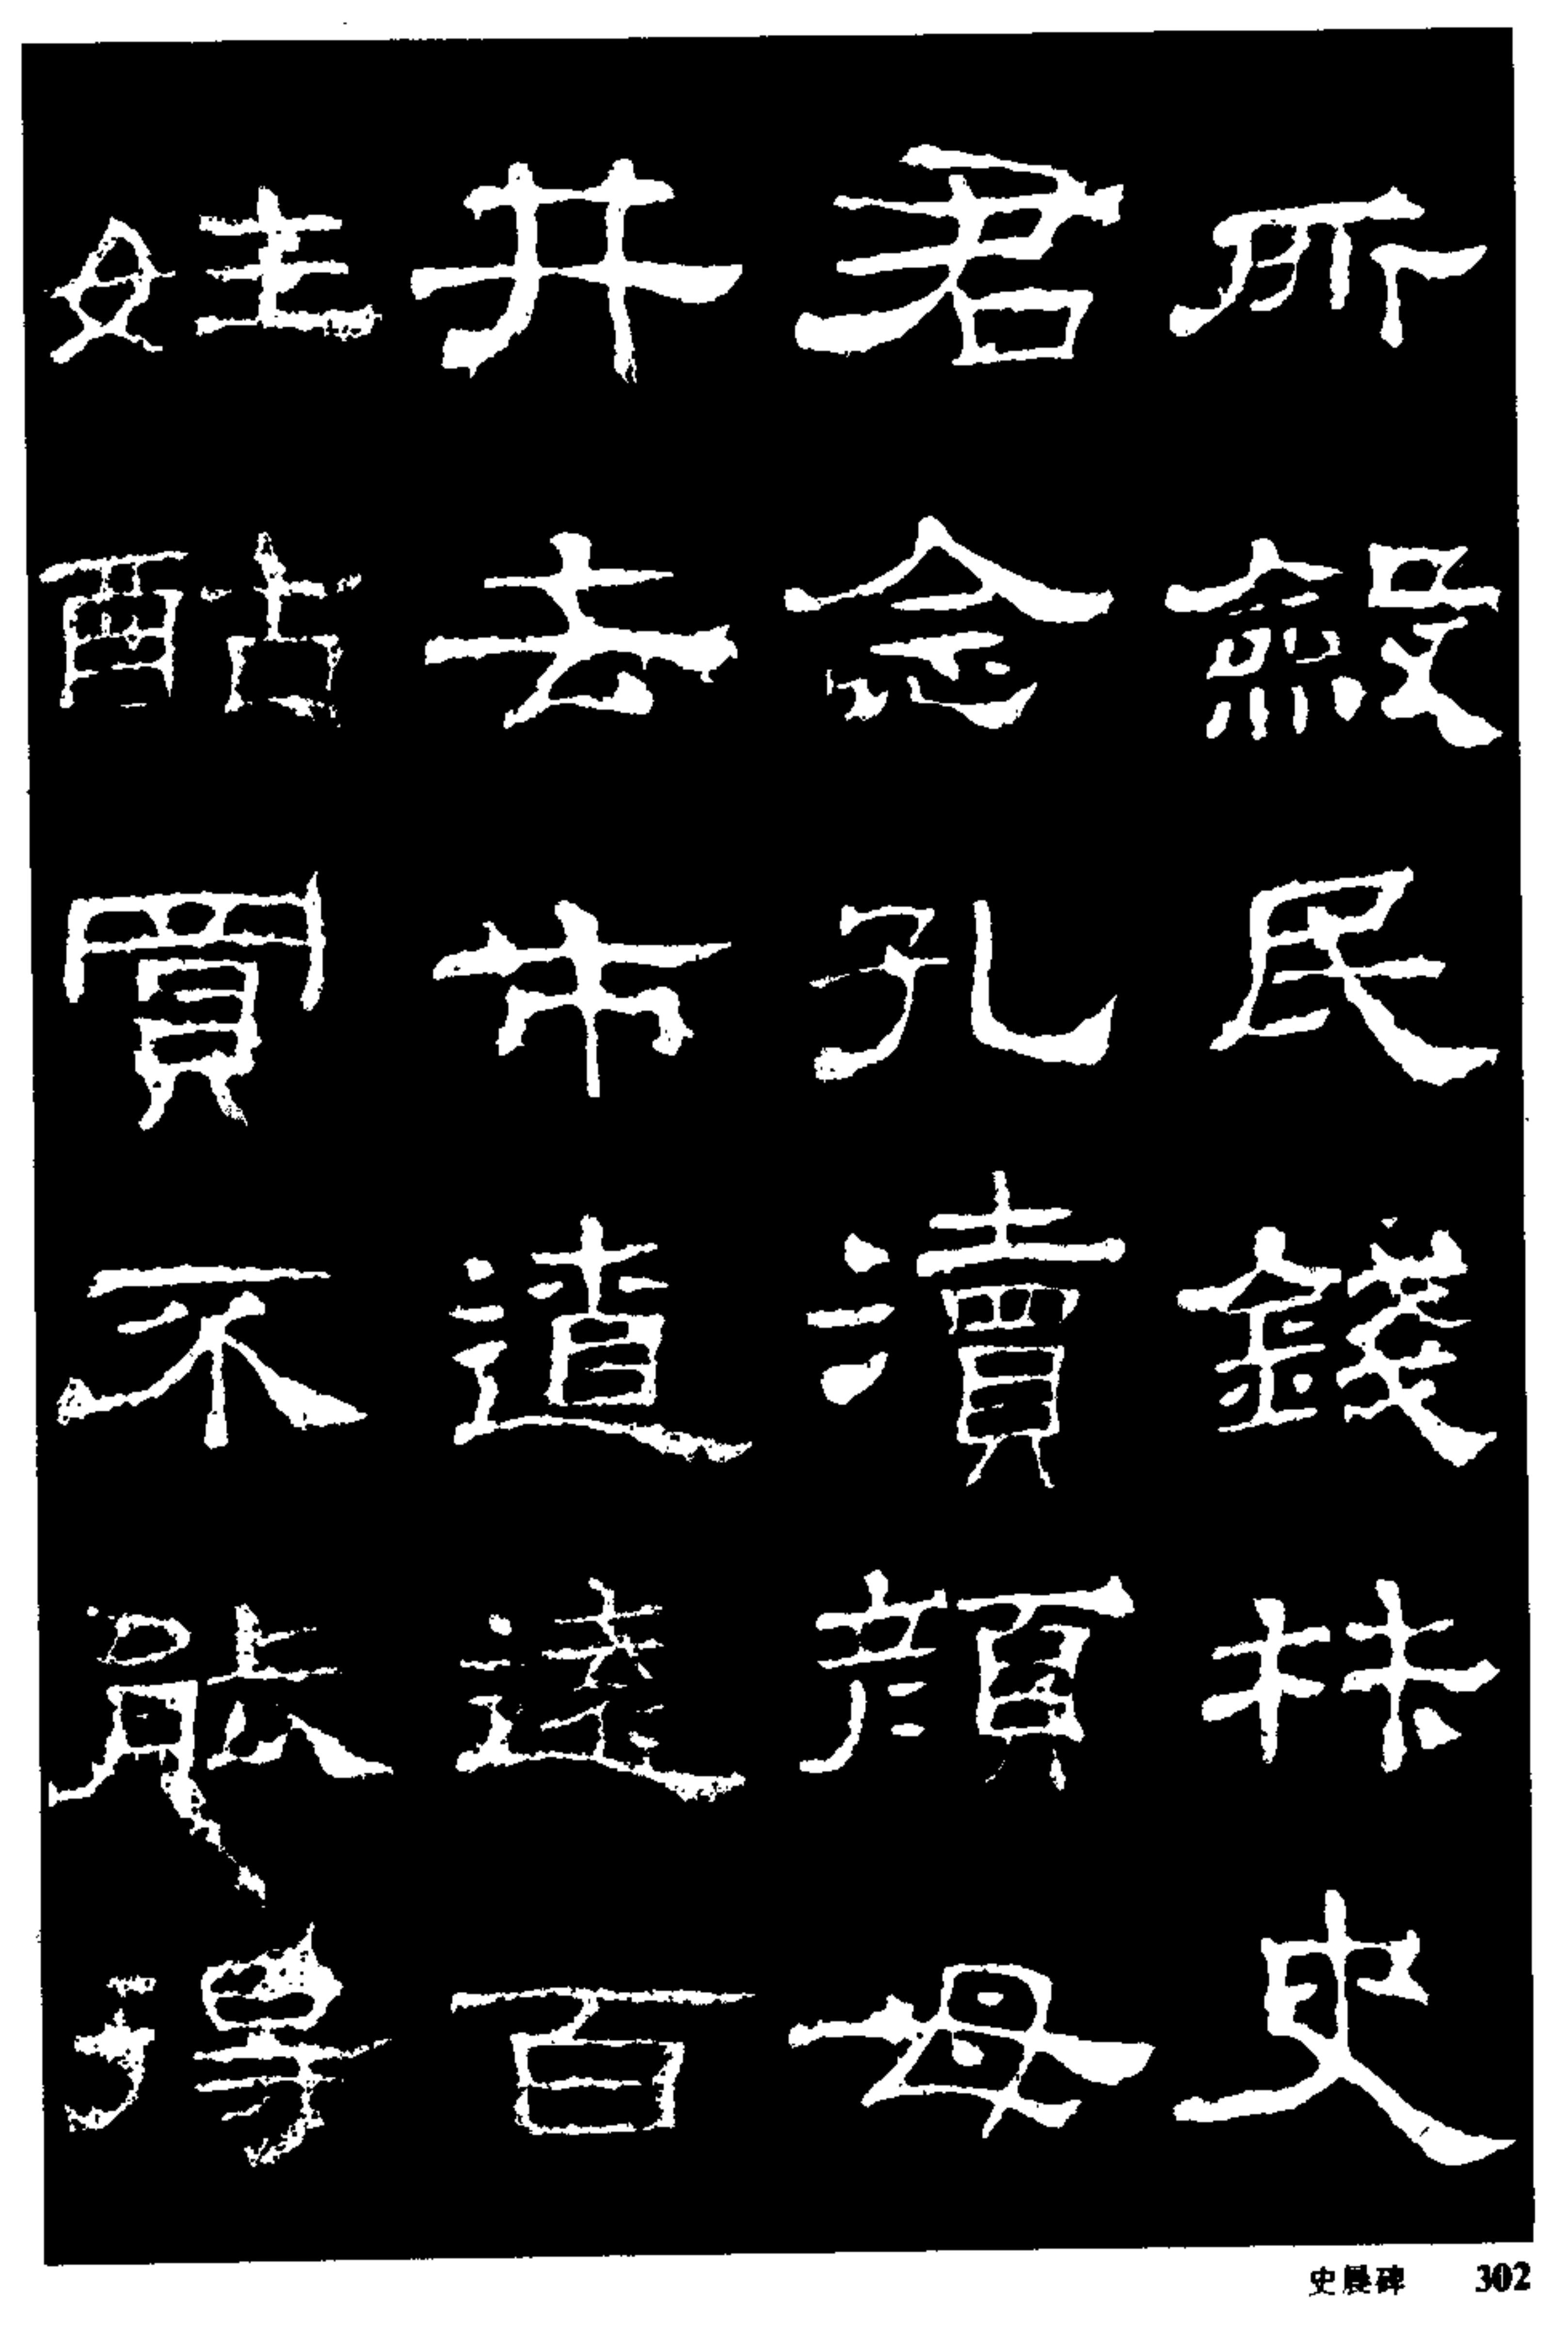 所斂民錢材史
君念孔瀆顏母
井去市遼遠百
姓酤買不能得
史晨碑 302